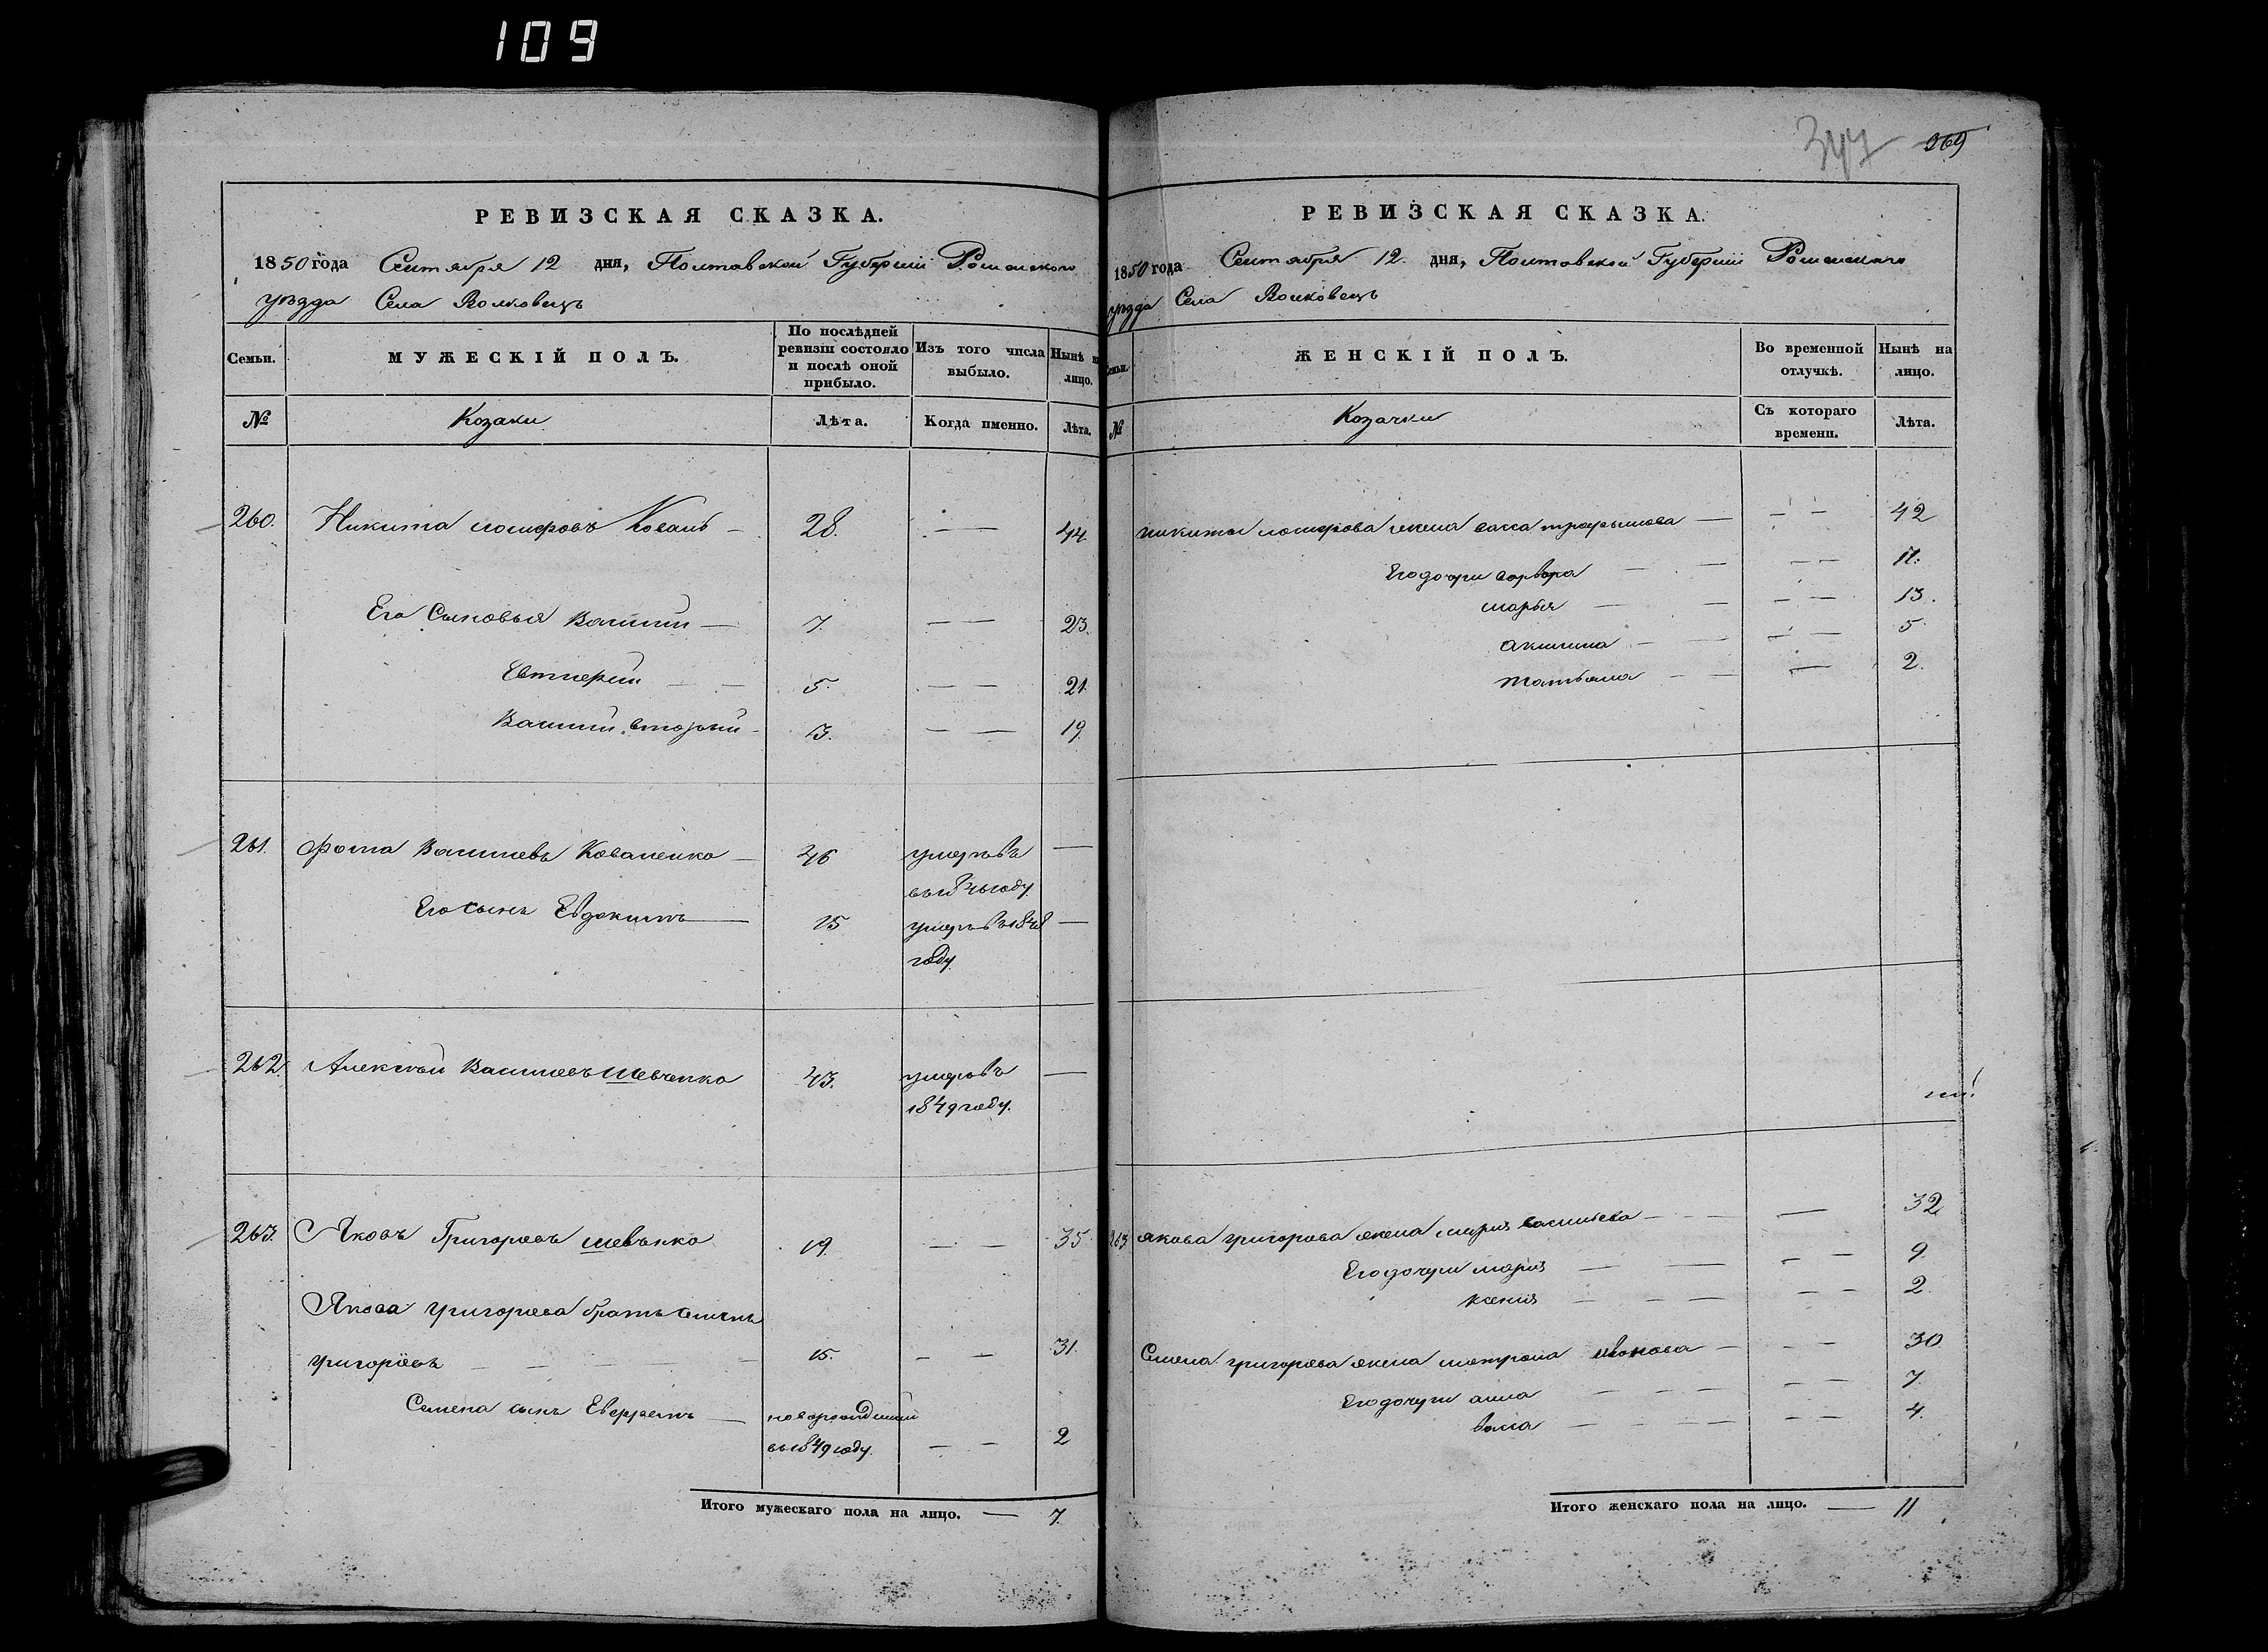 109
РЕВИЗСКАЯ СКАЗКА.
1850 года Сентября 12 дня, Полтавской Губерніи Роменского
уѣзда Села Волковецъ
Семьи.
МУЖЕСКІЙ ПОЛЪ.
По послѣдней ревизіи состояло и послѣ оной прибыло.
Изъ того числа выбыло.
Нынѣ на лицо.
№
Козаки
Лѣта.
Когда именно.
Лѣта.
260. Никита Коваль 28. 44.
Его Сыновья Василій 7. 23.
Евтиерій 5. 21.
Василій вторый 3. 19.
261. Фома Васильевъ Коваленко 46 умеръ въ
году
Его сынъ Евдокимъ 15 умеръ въ 1848
году.
262. Алексѣй Васильевъ Шевченко 43. умеръ въ
1849 году.
263. Яковъ Григорьевъ 19. 35
Якова Григорьева братъ Семенъ
Григорьевъ 15. 31.
Семена сынъ новорожденный
въ 1849 году. 2
Итого мужескаго пола на лицо. — 7.
347 269
РЕВИЗСКАЯ СКАЗКА.
1850 года Сентября 12. дня, Полтавской Губерніи Роменскаго
уѣзда Села Волковецъ
Семьи.
ЖЕНСКІЙ ПОЛЪ.
Во временной отлучкѣ.
Нынѣ на лицо.
№
Козачки
Съ котораго времени.
Лѣта.
Никиты жена васса 42
Его дочери варвара
марья 13.
акилина 5.
татьяна 2.
263 Якова Григорьева жена марія васильева 32
Его дочери марія 9.
ксенія 2.
Семена григорьева жена матрона иванова 30
Его дочери анна 7.
4.
Итого женскаго пола на лицо. — 11